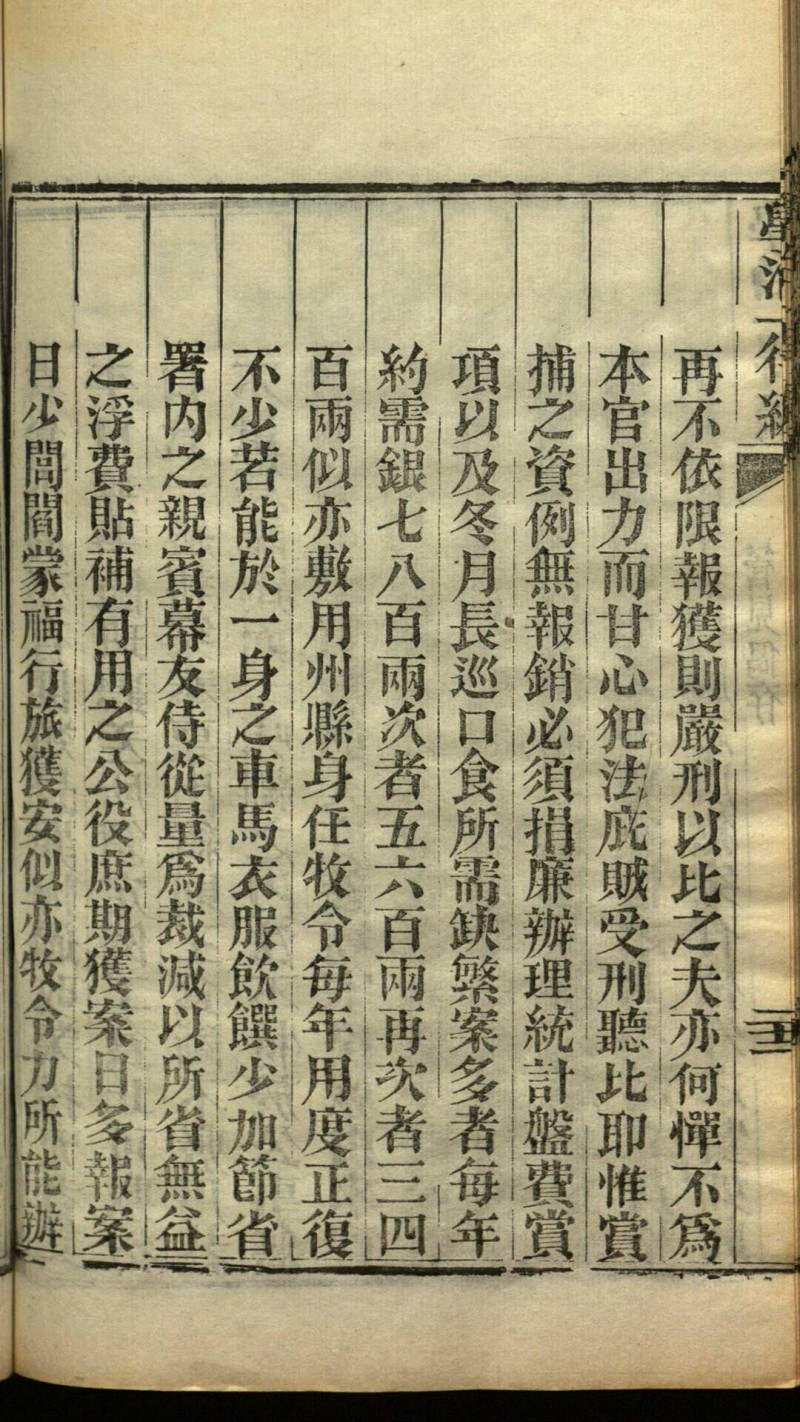 再不依限報獲則嚴刑以比之夫亦何憚不爲
本官出力而甘心犯法庇賊受刑聽比耶惟賞
捕之資例無報銷必須捐廉辦理統計盤費賞
項以及冬月長巡口食所需缺繁案多者每年
約需銀七八百兩次者五六百兩再次者三四
百兩似亦敷用州縣身任牧令每年用度正復
不少若能於一身之車馬衣服飲饌少加節省
署內之親賓幕友侍從量爲裁減以所省無益
之浮費貼補有用之公役庶期獲案日多報案
日少閭閻蒙福行旅獲安似亦牧令力所能辦